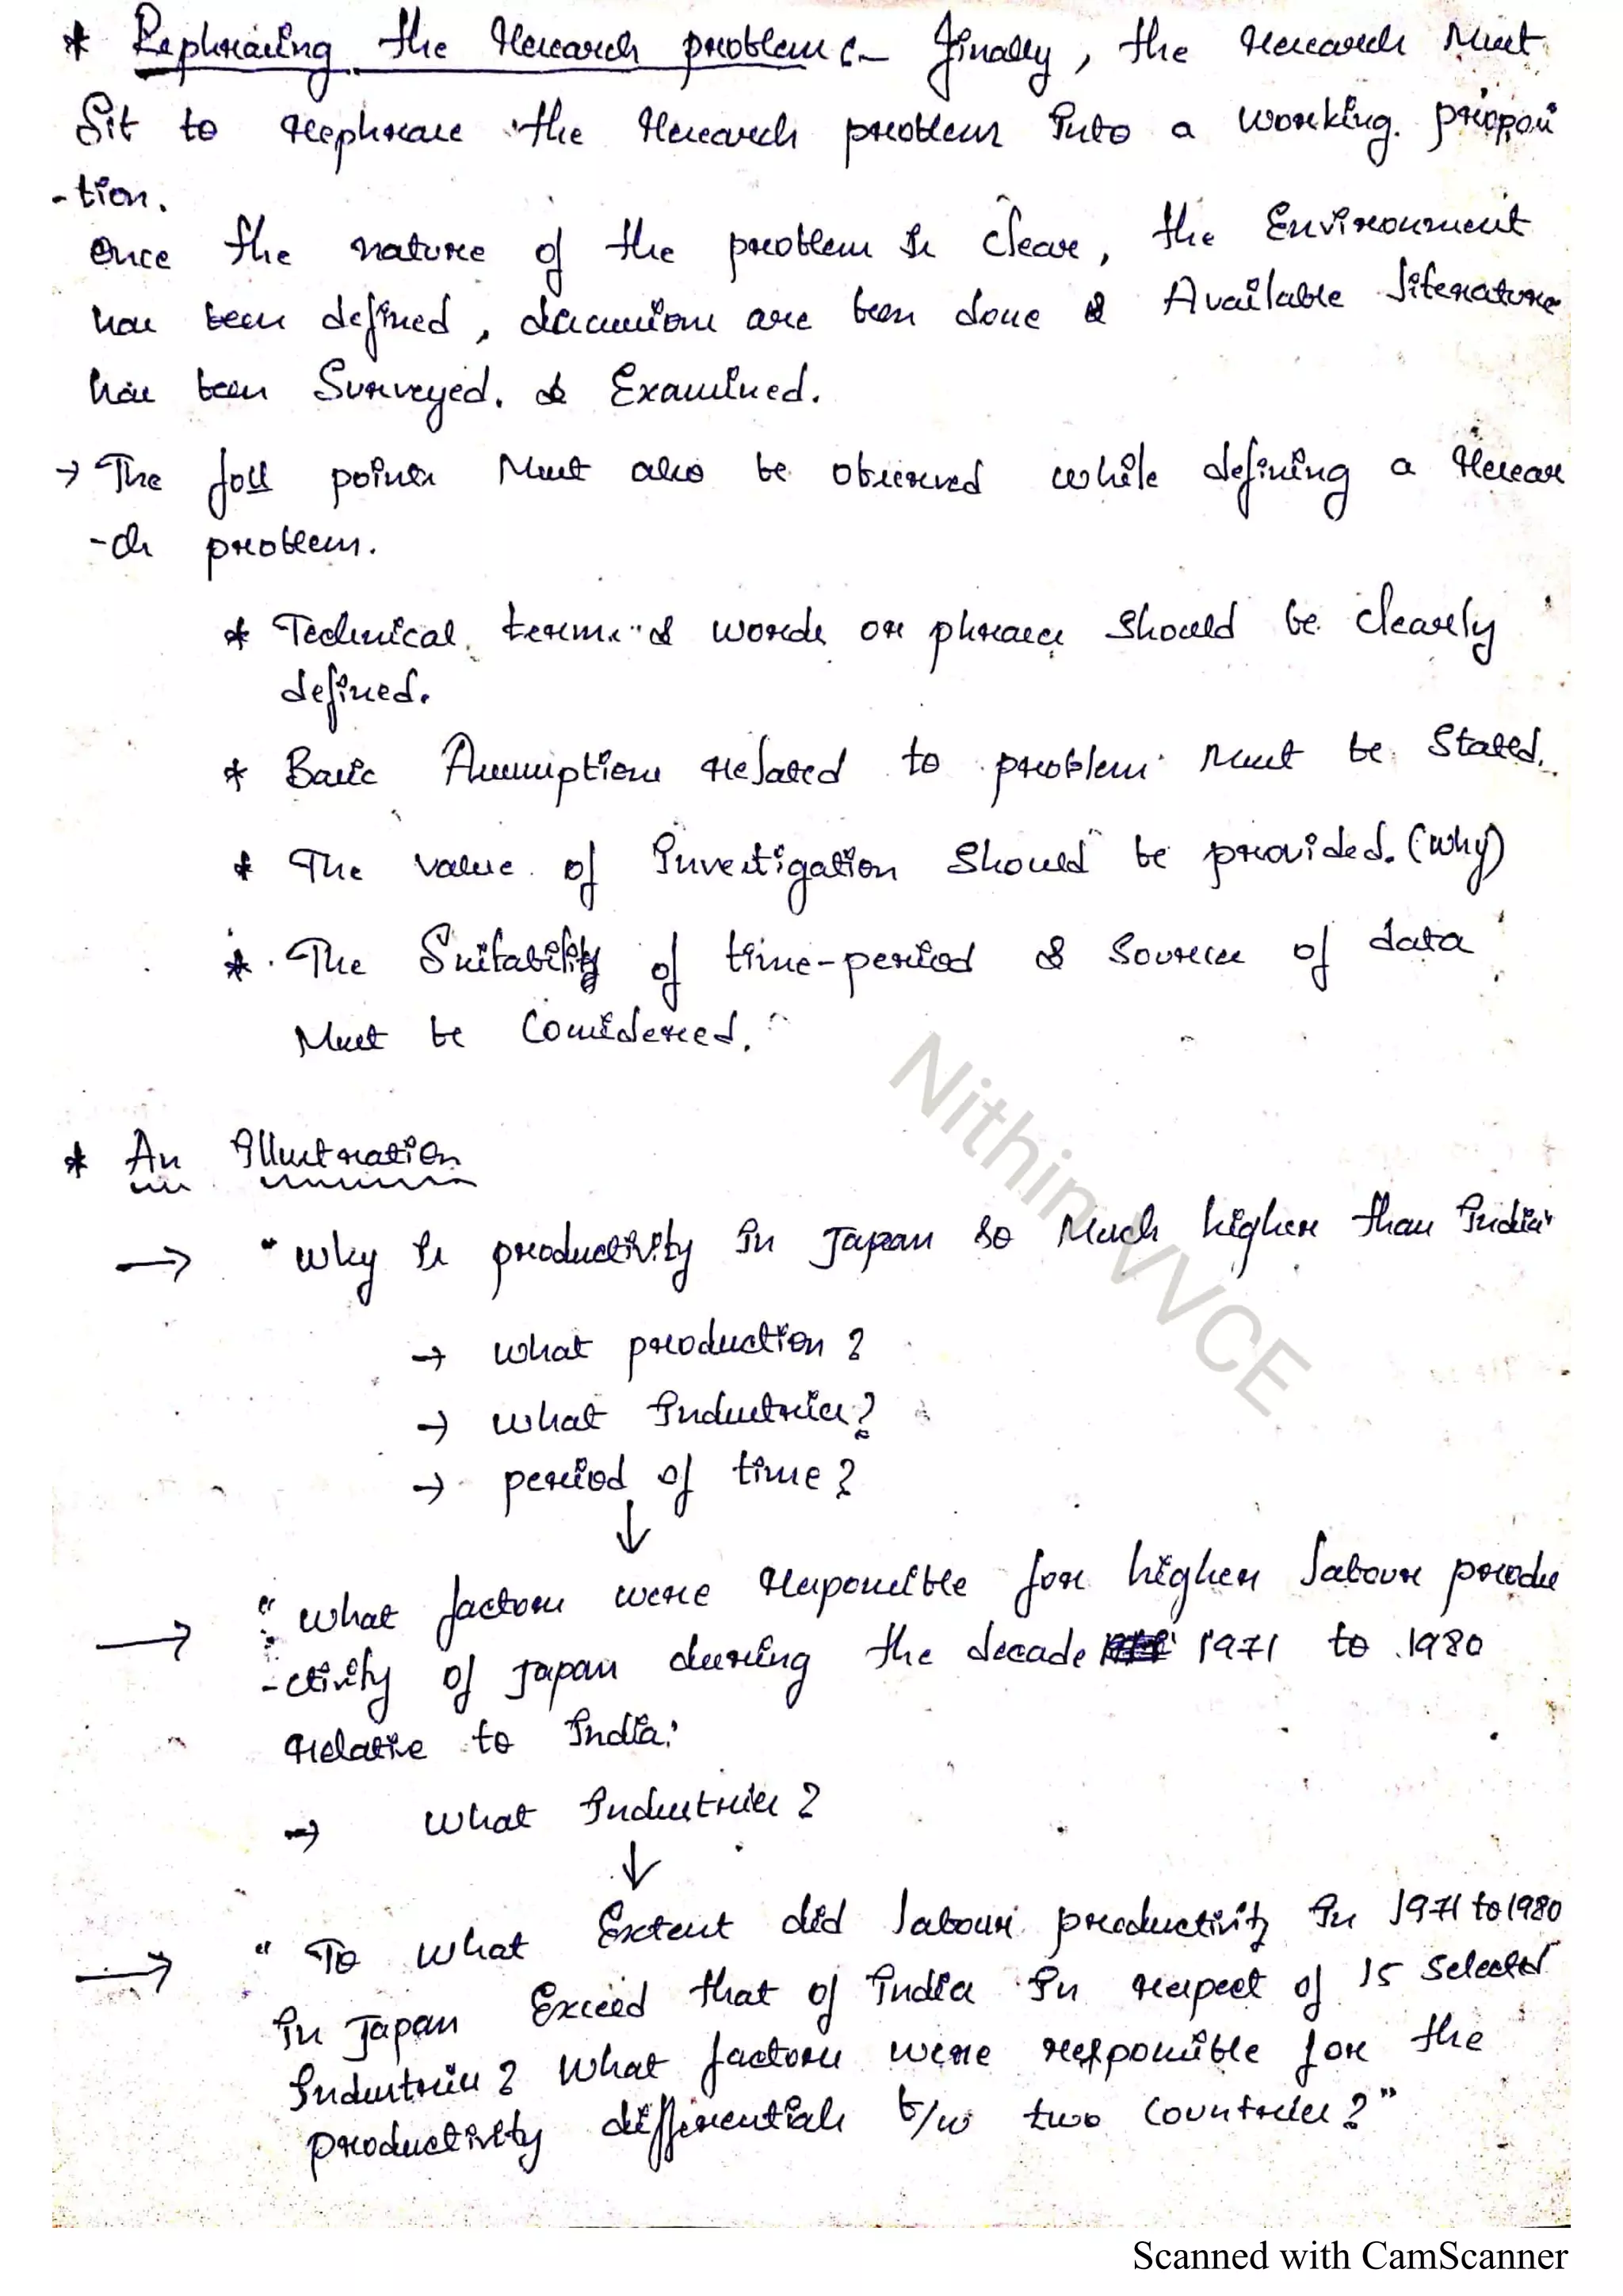 * Rephrasing the Research problem :- Finally, the research Must
Sit to rephrase the Research problem into a working proposi
-tion.
Once the nature of the problem is clear, the Environment
has been defined, discussions are been done & Available literature
has been Surveyed. & Examined.
→ The foll points Must also be observed while defining a Resear
-ch problem.
* Technical terms & words or phrases should be clearly
defined.
* Basic Assumptions related to problem Must be Stated.
* The value of Investigation Should be provided. (why)
* The Suitability of time-period & Sources of data
Must be Considered.
* An Illustration
→ "Why is productivity in Japan so Much higher than India"
→ what production ?
→ what Industries ?
→ period of time ?
↓
→ "What factors were responsible for higher labour produ
-ctivity of Japan during the decade 1971 to 1980
relative to India."
→ What Industries ?
↓
→ "To what Extent did labour productivity in 1971 to 1980
in Japan Exceed that of India in respect of 15 Selected
Industries ? What factors were responsible for the
productivity differentials b/w two Countries ?"
Nithin VVCE
Scanned with CamScanner